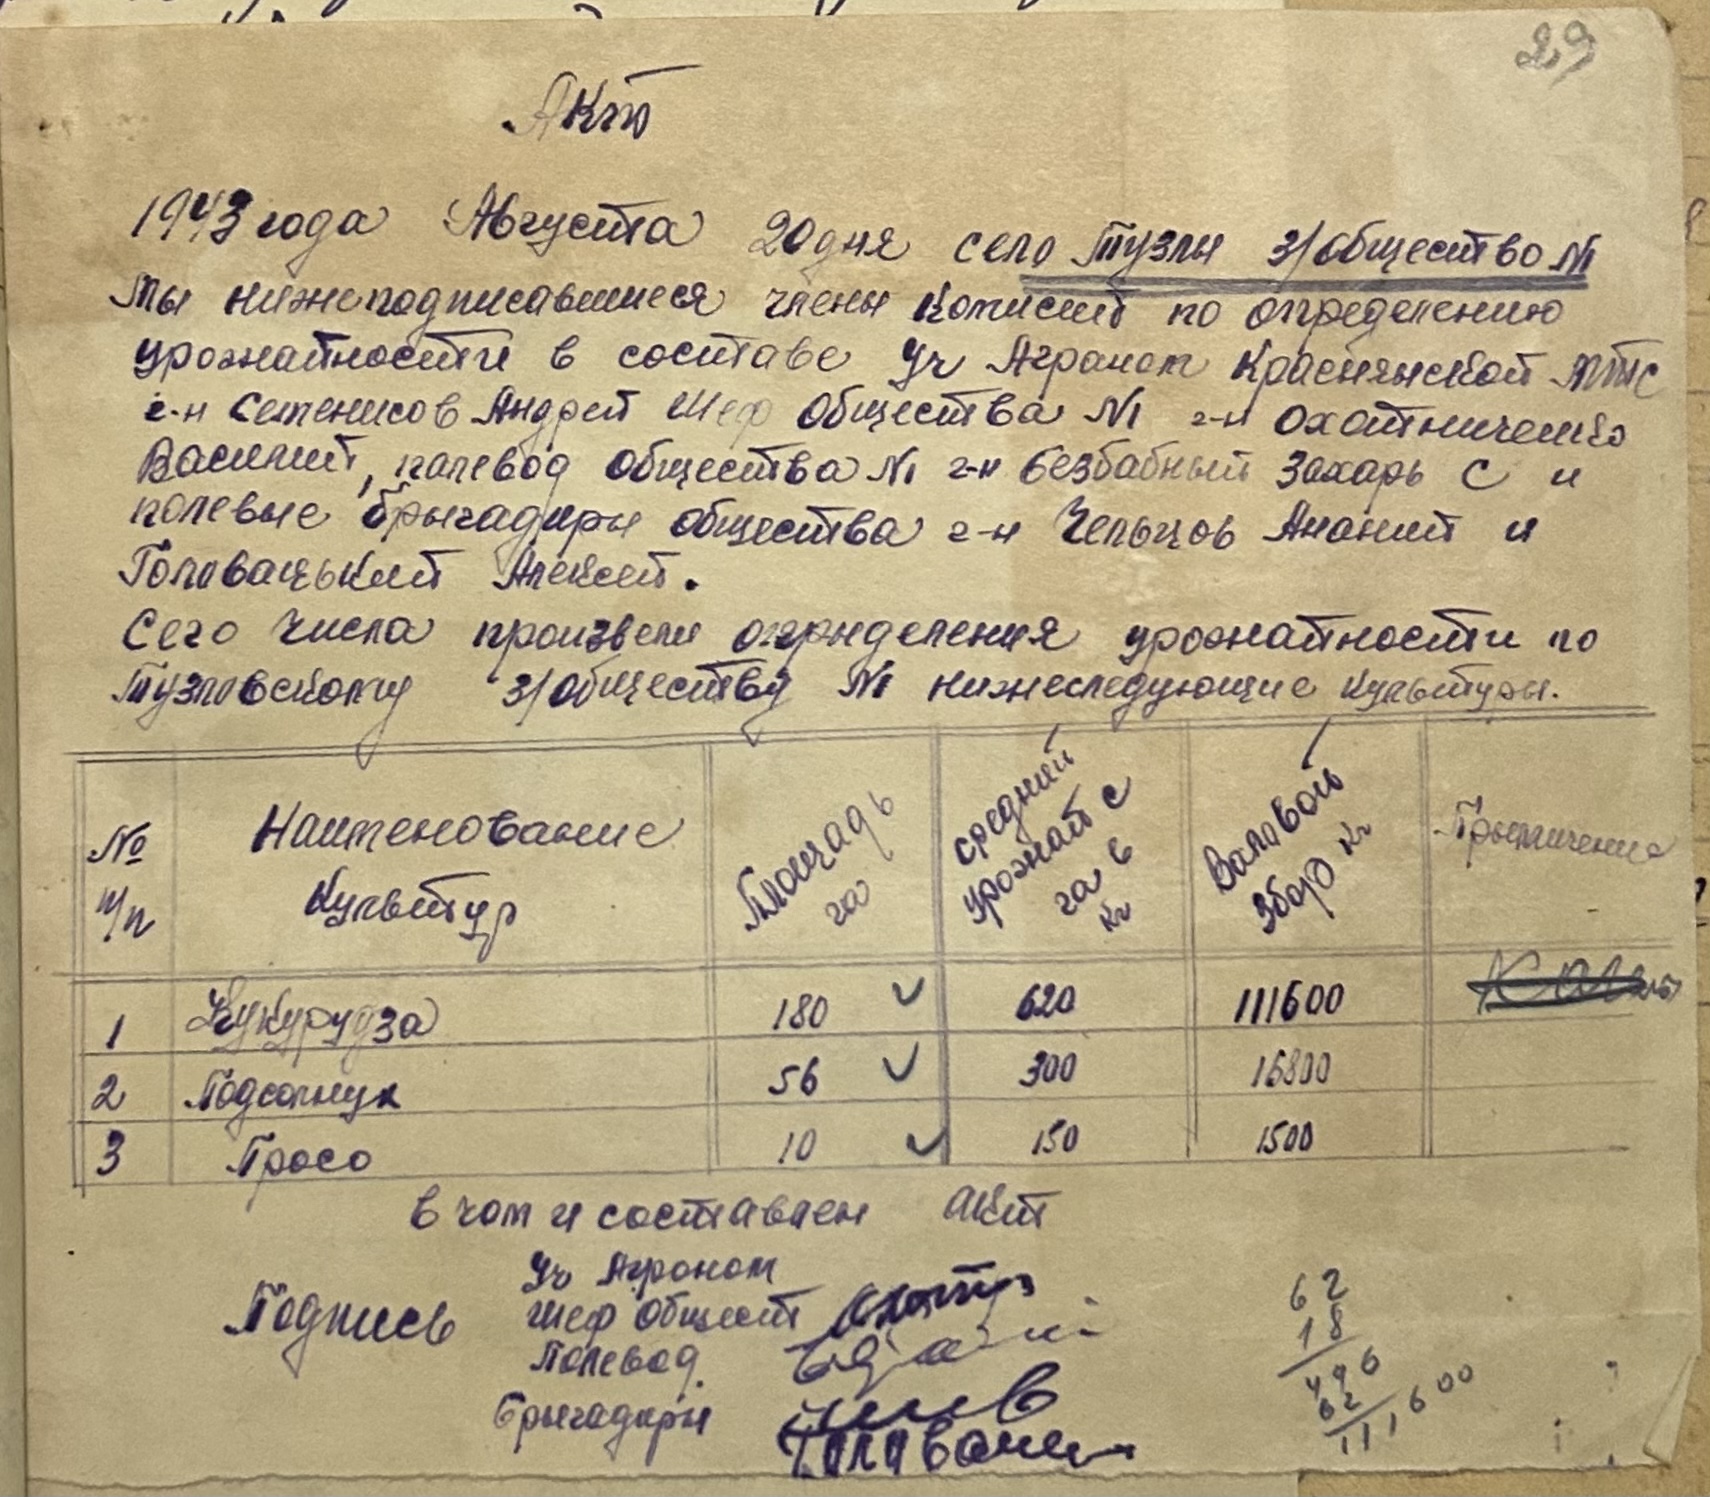 29
Акт
1943 года Августа 20 дня село Тузлы з/общество №1
Мы нижеподписавшиеся члены комисий по определению
урожайности в составе Уч Агроном Краснянской МТС
г-н Семенисов Андрей Шеф общества №1 г-н Охотниченко
Василий, палевод общества №1 г-н Безбабный Захарь С и
полевые брыгадиры общества г-н Чельцов Ананий и
Головацький Алексей.
Сего числа произвели опрыделения урожайности по
Тузловскому з/обществу №1 нижеследующие культуры.
№ п/п | Наименование культур | Площадь га | средний урожай с га в кг | Валовой збор кг | Прымичение
1 | Кукурудза | 180 | 620 | 111600
2 | Подсолнук | 56 | 300 | 16800
3 | Просо | 10 | 150 | 1500
в чом и составлен акт
Уч Агроном
Подпись Шеф общест
Полевод
Брыгадиры
62
18
496
62
111,600